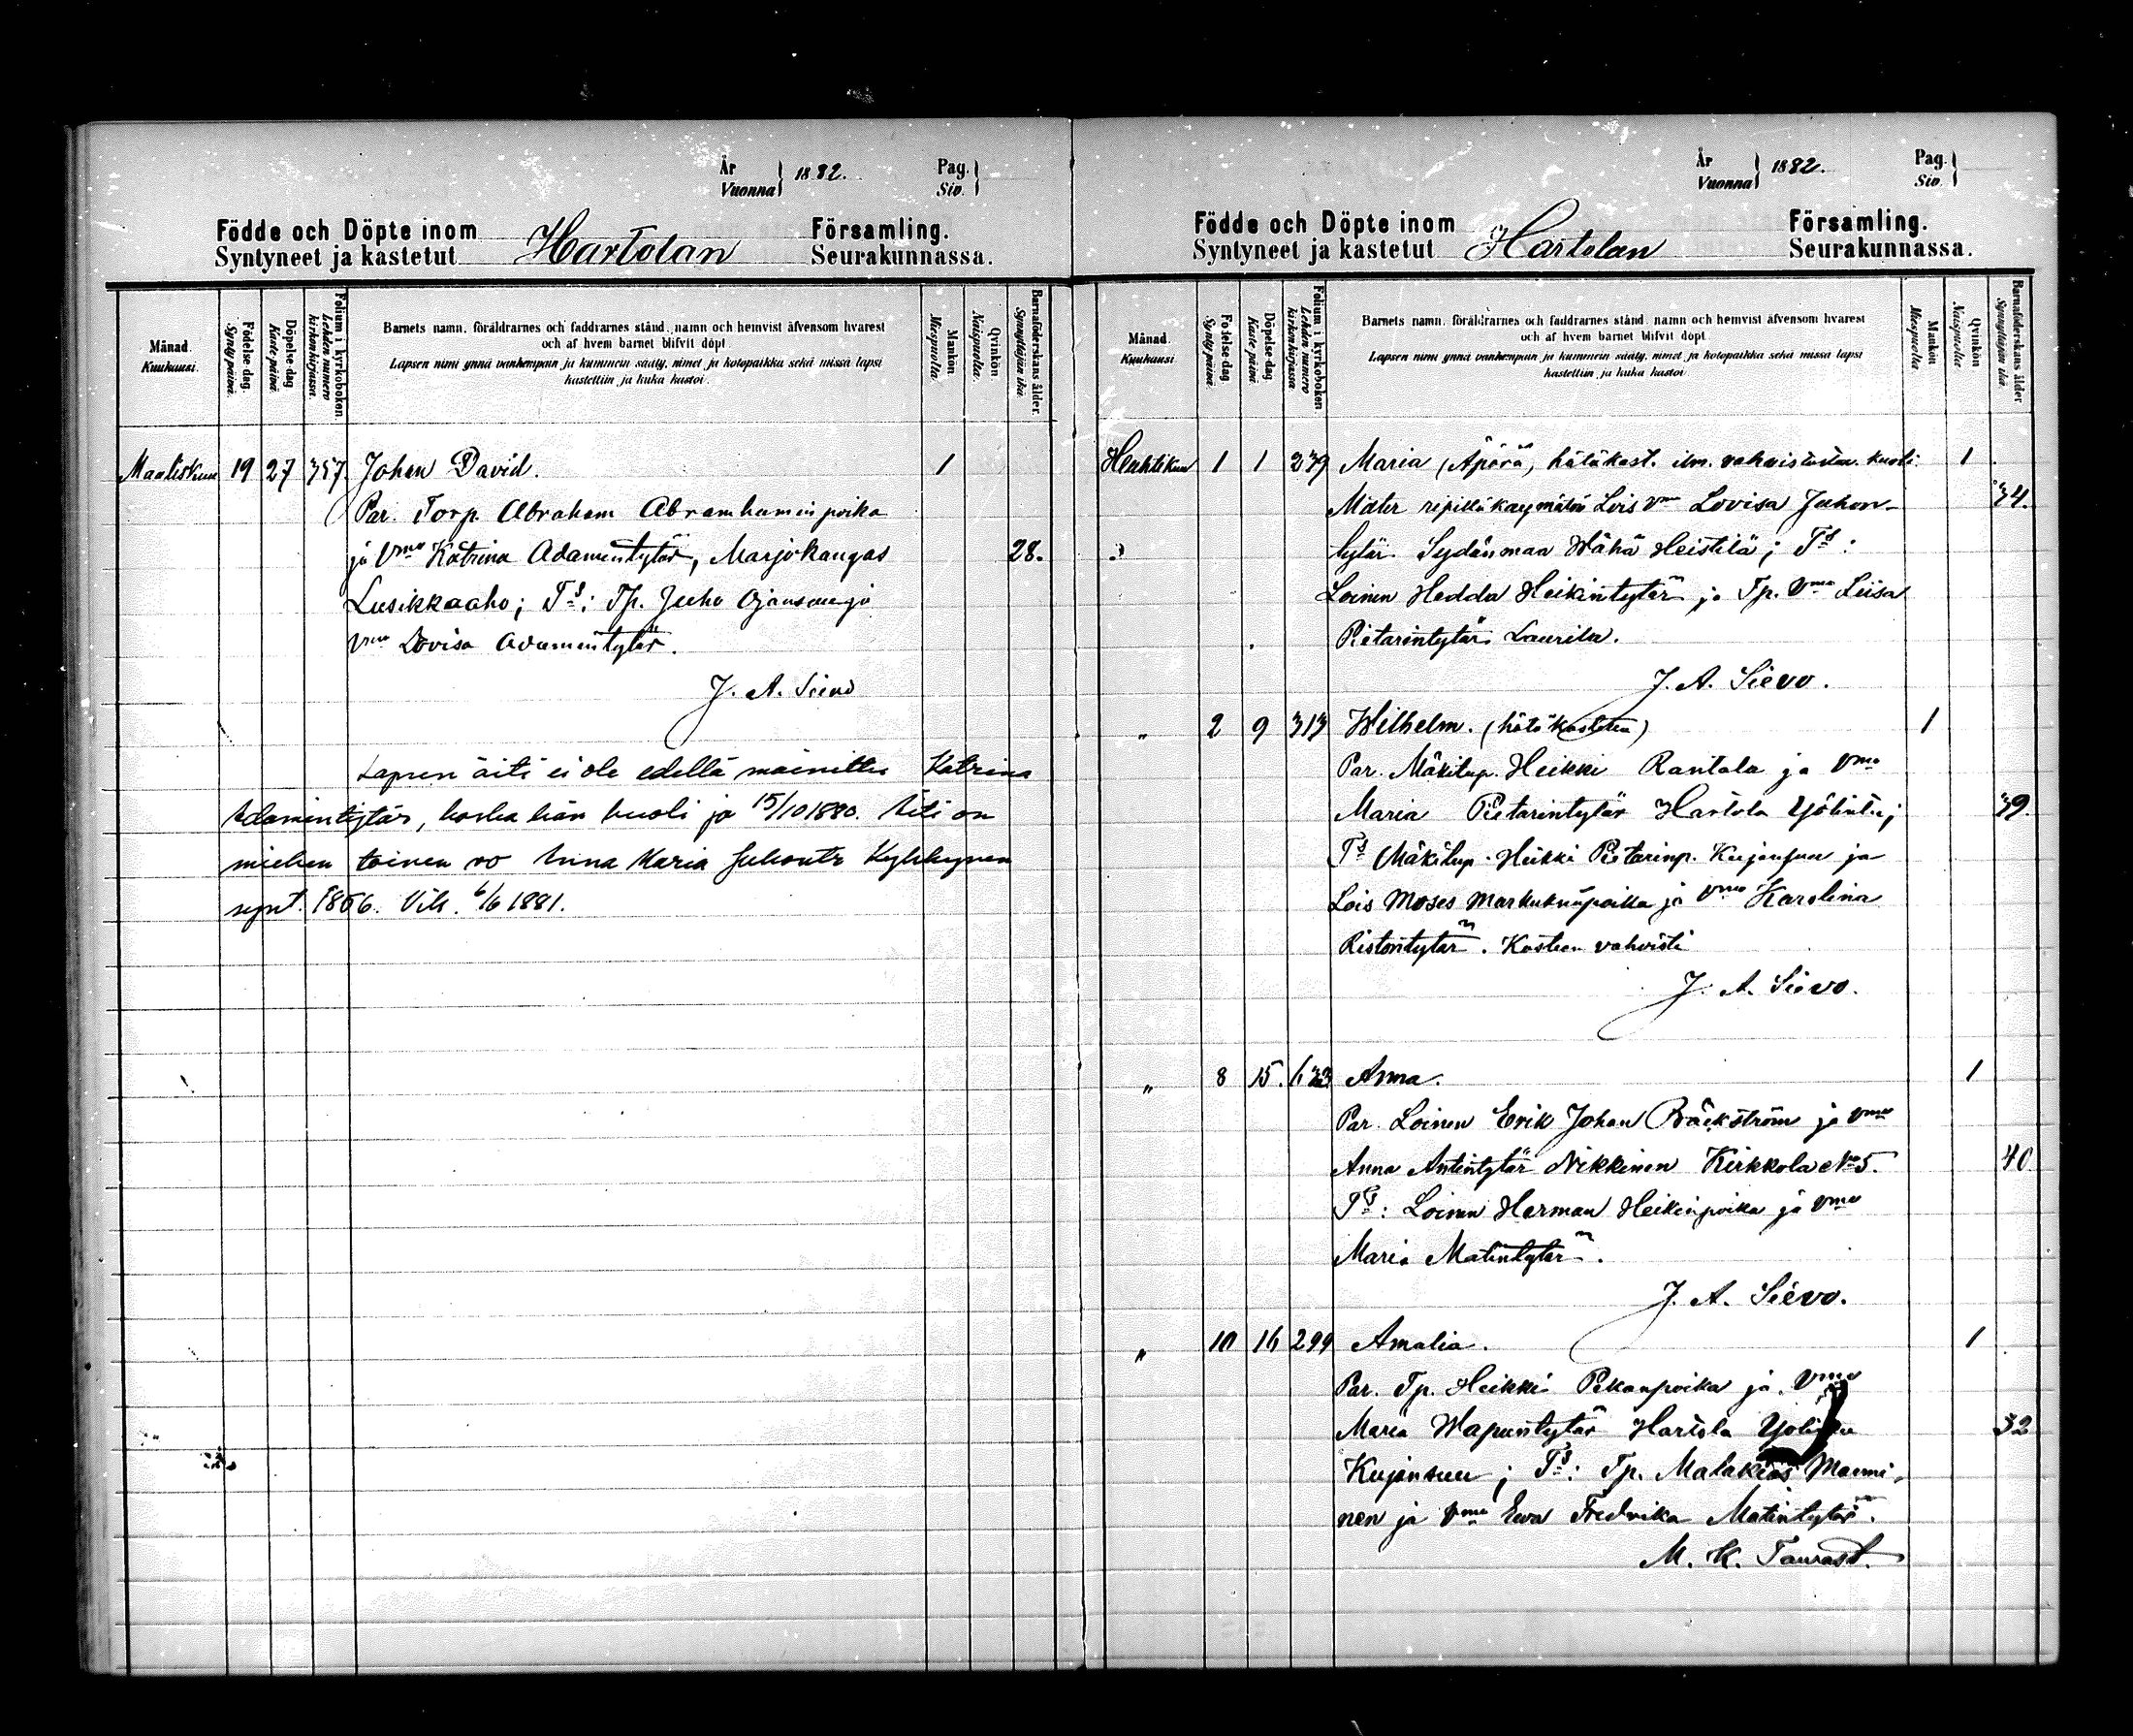 År
Vuonna } 1882.
Pag.
Siv. }
Födde och Döpte inom Församling.
Syntyneet ja kastetut Hartolan Seurakunnassa.
Månad.
Kuukausi.
Födelse dag.
Synty päivä.
Döpelse dag
Kaste päivä
Folium i kyrkoboken
Lehden numero
kirkonkirjassa.
Barnets namn, föräldrarnes och faddrarnes stånd, namn och hemvist äfvensom hvarest
och af hvem barnet blifvit döpt.
Lapsen nimi ynnä vanhempain ja kummein sääty, nimet ja kotopaikka sekä missä lapsi
kastettiin ja kuka kastoi.
Mankön
Miespuolta.
Qvinkön.
Naispuolta.
Barnaföderskans ålder.
Synnyttäjän ikä
Maaliskuu 19 27 357. Johan David. 1
Par. Torp. Abraham Abramhaminpoika
ja Vmo Katrina Adamintytär, Marjokangas 28.
Lusikkaaho; Ts: Tp. Juho Ojansuu ja
Vmo Lovisa Adamintytär.
J. A. Sievo
Lapsen äiti ei ole edellä mainittu Katrina
Adamintytär, koska hän kuoli jo 15/10 1880. Äiti on
miehen toinen vo Anna Maria Juhontr Kylkkynen
synt. 1856. Vih. 6/6 1881.
År
Vuonna } 1882.
Pag.
Siv. }
Födde och Döpte inom Församling.
Syntyneet ja kastetut Hartolan Seurakunnassa.
Månad
Kuukausi
Födelse dag
Synty päivä.
Döpelse dag
Kaste päivä
Folium i kyrkoboken
Lehden numero
kirkonkirjassa
Barnets namn, föräldrarnes och faddrarnes stånd, namn och hemvist äfvensom hvarest
och af hvem barnet blifvit döpt
Lapsen nimi ynnä vanhempain ja kummein sääty, nimet ja kotopaikka sekä missä lapsi
kastettiin ja kuka kastoi
Mankön
Miespuolta
Qvinkön
Naispuolta
Barnaföderskans ålder
Synnyttäjän ikä
Huhtikuu 1 1 239 Maria (Äpärä, hätäkast. ilm. vahvistusta. kuoli 1
Mater ripillä käymätön Lois Vmo Lovisa Juhon- 34.
tytär Sydänmaa Wähä Heistilä; Ts:
Loinen Hedda Heikintytär ja Tp. Vmo Liisa
Pietarintytär Laurila.
J. A. Sievo.
" 2 9 313 Wilhelm. (hätäkastettu) 1
Par. Mäkitup. Heikki Rantala ja Vmo
Maria Pietarintytär Hartola Yölintu; 39.
Ts Mäkitup. Heikki Pietarinp. Kujansuu ja
Lois Moses Markuksenpoika ja Vmo Karolina
Ristontytär. Kasteen vahvisti
J. A. Sievo.
" 8 15. 633 Anna. 1
Par. Loinen Erik Johan Bäckström ja Vmo
Anna Antintytär Nikkinen Kirkkola No 5. 40
Ts: Loinen Herman Heikinpoika ja Vmo
Maria Matintytär.
J. A. Sievo.
" 10 16 299 Amalia. 1
Par. Tp. Heikki Pekanpoika ja Vmo
Maria Wapuntytär Hartola 32
Kujansuu; Ts: Tp. Malakias Manni-
nen ja Vmo Eva Fredrika Matintytär.
M. K. Taurast.